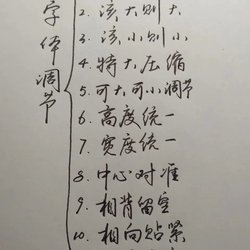 字体调节
2. 该大则大
3. 该小则小
4. 特大压缩
5. 可大可小调节
6. 高度统一
7. 宽度统一
8. 中心对准
9. 相背留空
10. 相向贴紧